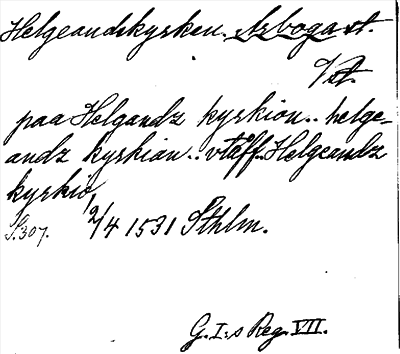 Helgeandskyrkan. Arboga st.
/st.
paa Helgandz kyrkion.. helge-
andz kyrkian.. vtaff Helgeandz
kyrkiō,
S. 307. 12/4 1531 Sthlm.
G. I:s Reg. VII.